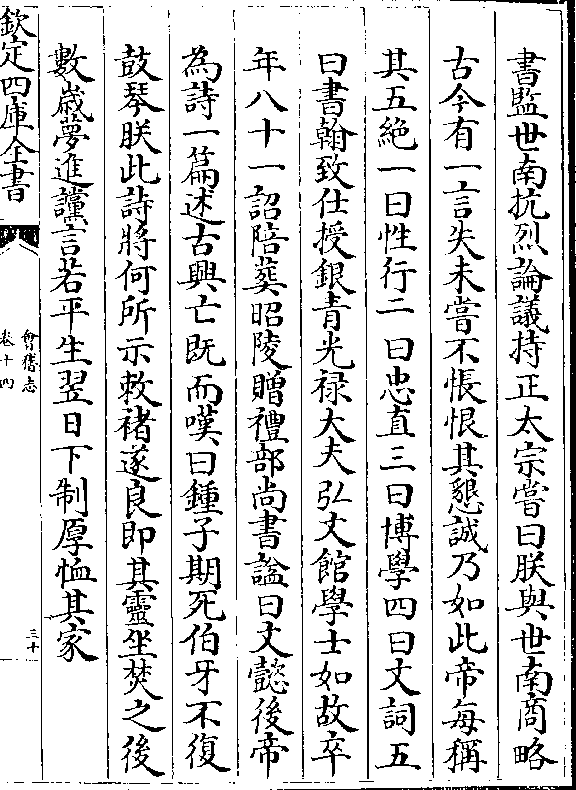 書監世南抗烈論議持正太宗嘗曰朕與世南商略
古今有一言失未嘗不悵恨其懇誠乃如此帝每稱
其五絶一曰性行二曰忠直三曰博學四曰文詞五
曰書翰致仕授銀青光禄大夫弘文館學士如故卒
年八十一詔陪葬昭陵贈禮部尚書諡曰文懿後帝
為詩一篇述古興亡既而嘆曰鍾子期死伯牙不復
鼓琴朕此詩將何所示敕褚遂良即其靈坐焚之後
數嵗夢進讜言若平生翌日下制厚恤其家
欽定四庫全書
會稽志
卷十四
三十